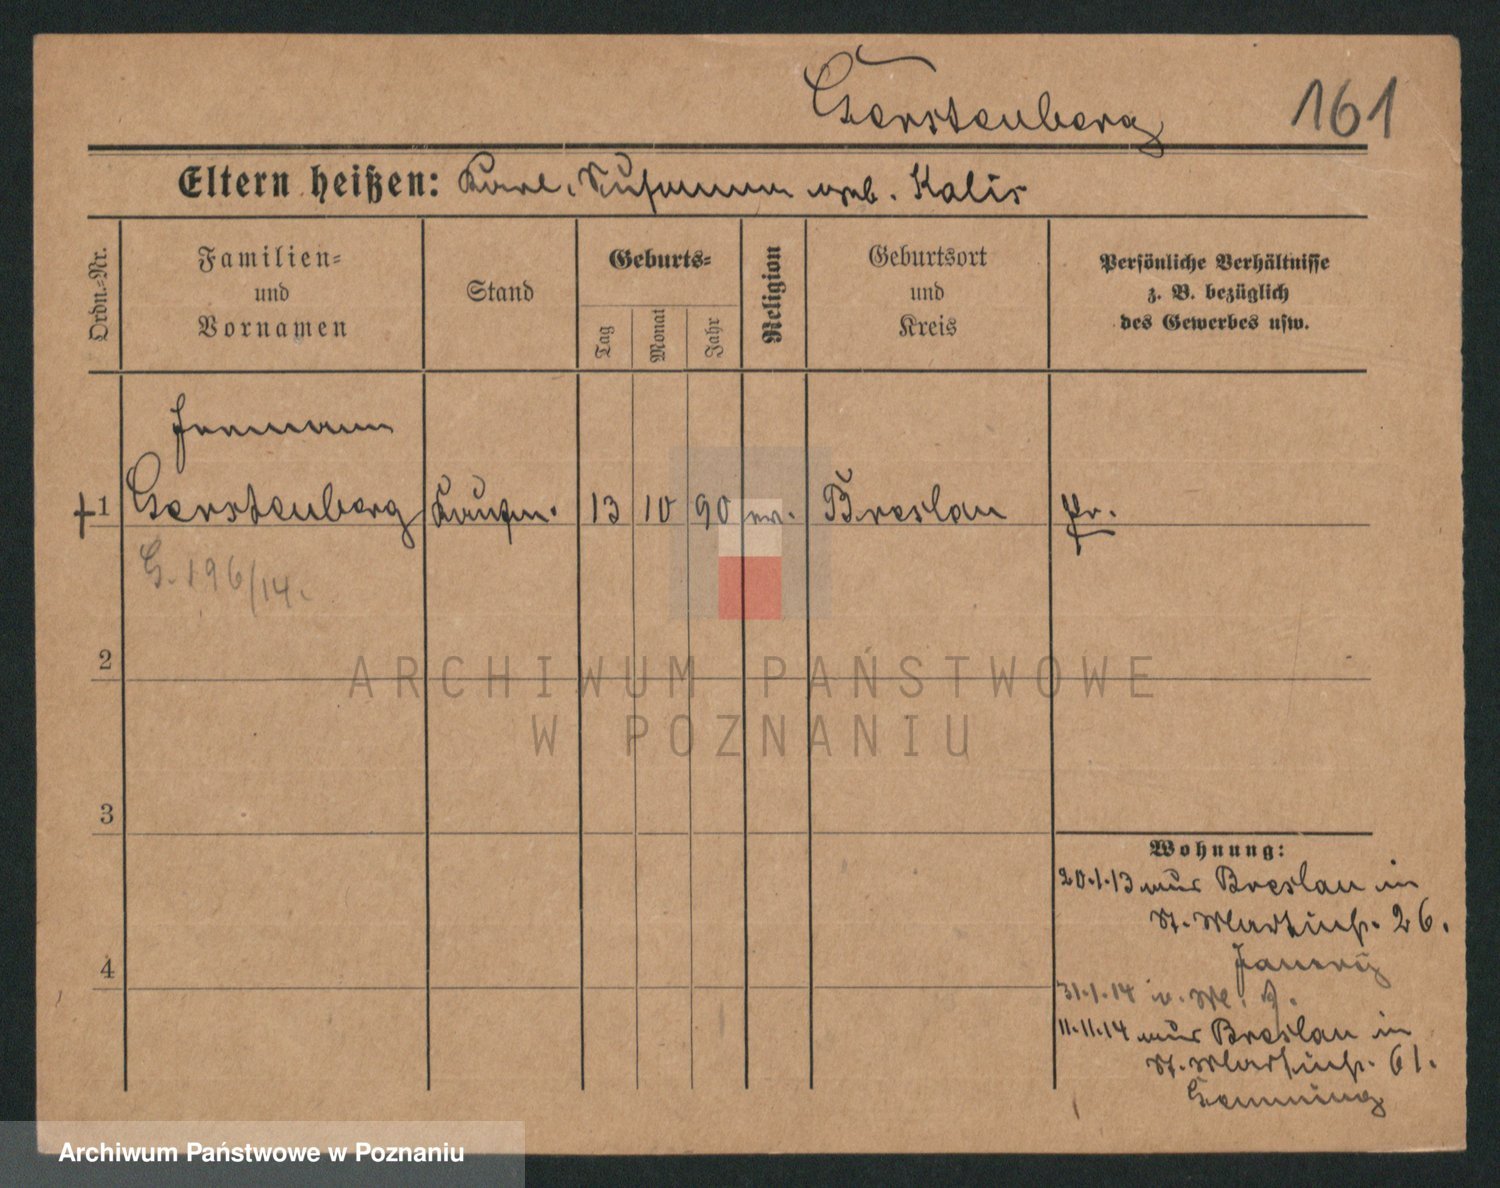 Gerstenberg
161
Eltern heißen: Karl, Susanna geb. Kalis
Ordn.-Nr.
Familien-
und
Vornamen
Stand
Geburts-
Tag
Monat
Jahr
Religion
Geburtsort
und
Kreis
Persönliche Verhältnisse
z. B. bezüglich
des Gewerbes usw.
Hermann
1 Gerstenberg Kaufm. 13 10 90 ev. Breslau Pr.
G. 196/14.
2
3
4
Wohnung:
20.1.13 aus Breslau in
St. Martinstr. 26.
31.1.14
11.11.14 aus Breslau in
St. Martinstr. 61.
ARCHIWUM PAŃSTWOWE
W POZNANIU
Archiwum Państwowe w Poznaniu